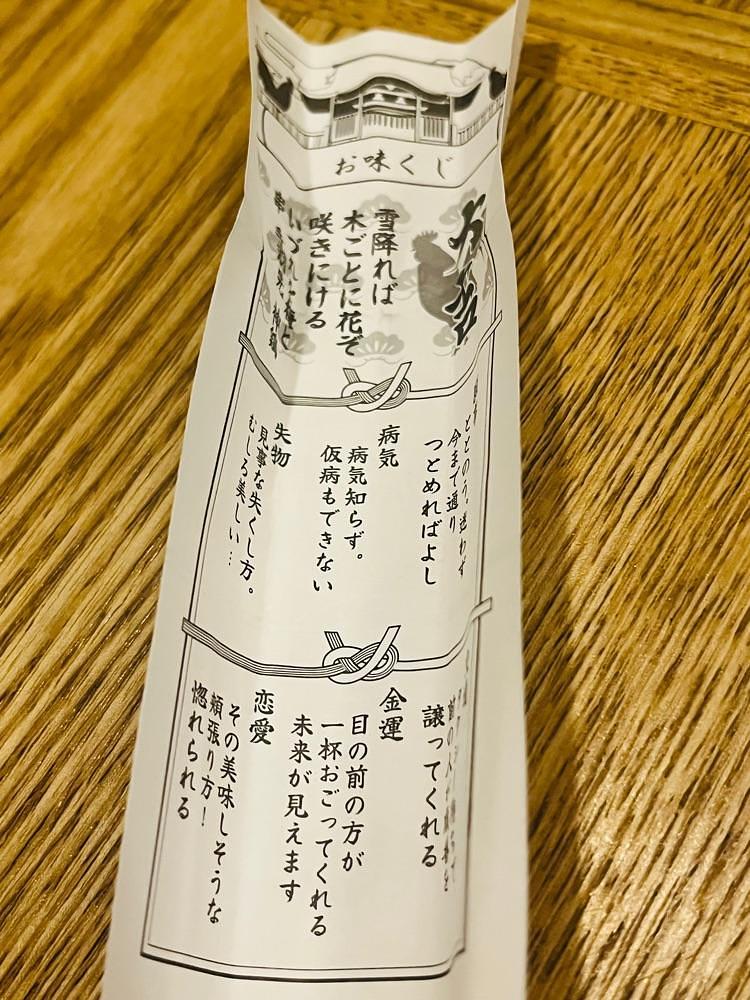 お味くじ
雪降れば
木ごとに花ぞ
咲きにける
いづれを梅と
ととのう。迷わず
今まで通り
つとめればよし
病気
病気知らず。
仮病もできない
失物
見事な失くし方。
むしろ美しい…
譲ってくれる
金運
目の前の方が
一杯おごってくれる
未来が見えます
恋愛
その美味しそうな
頬張り方！
惚れられる